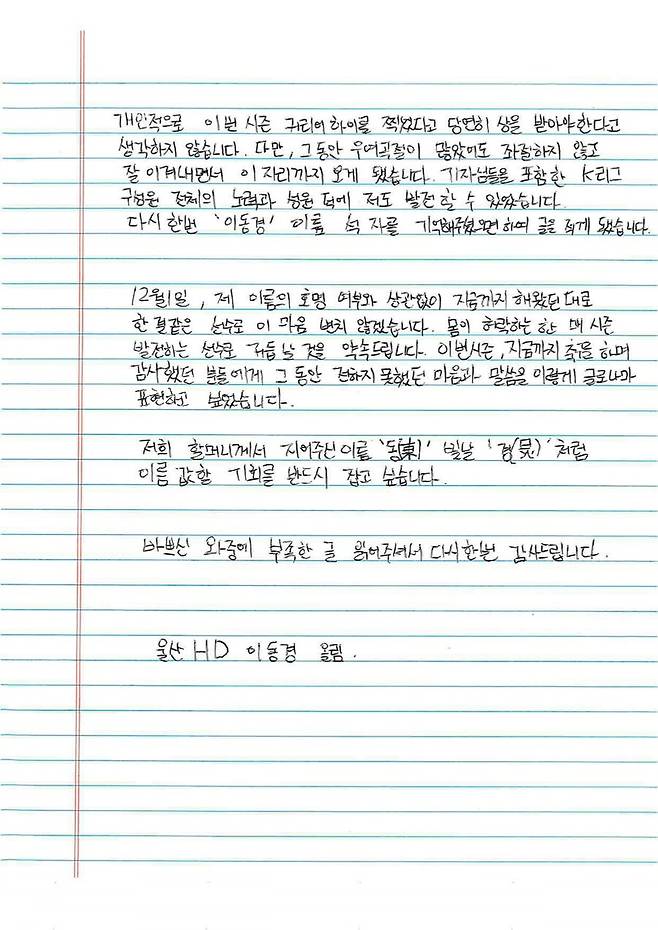 개인적으로 이번 시즌 커리어 하이를 찍었다고 당연히 상을 받아야 한다고
생각하지 않습니다. 다만, 그동안 우여곡절이 많았어도 좌절하지 않고
잘 이겨내면서 이 자리까지 오게 됐습니다. 기자님들을 포함한 K리그
구성원 전체의 노력과 성원 덕에 저도 발전할 수 있었습니다.
다시 한번 '이동경' 이름 석 자를 기억해주셨으면 하여 글을 적게 됐습니다.
12월1일, 제 이름의 호명 여부와 상관없이 지금까지 해왔던 대로
한결같은 선수로 이 마음 변치 않겠습니다. 몸이 허락하는 한 매 시즌
발전하는 선수로 거듭 날 것을 약속드립니다. 이번 시즌, 지금까지 축구를 하며
감사했던 분들에게 그 동안 전하지 못했던 마음과 말씀을 이렇게 글로나마
표현하고 싶었습니다.
저희 할머니께서 지어주신 이름 '동(東)' 빛날 '경(炅)' 처럼
이름 값할 기회를 반드시 잡고 싶습니다.
바쁘신 와중에 부족한 글 읽어주셔서 다시 한번 감사드립니다.
울산 HD 이동경 올림.